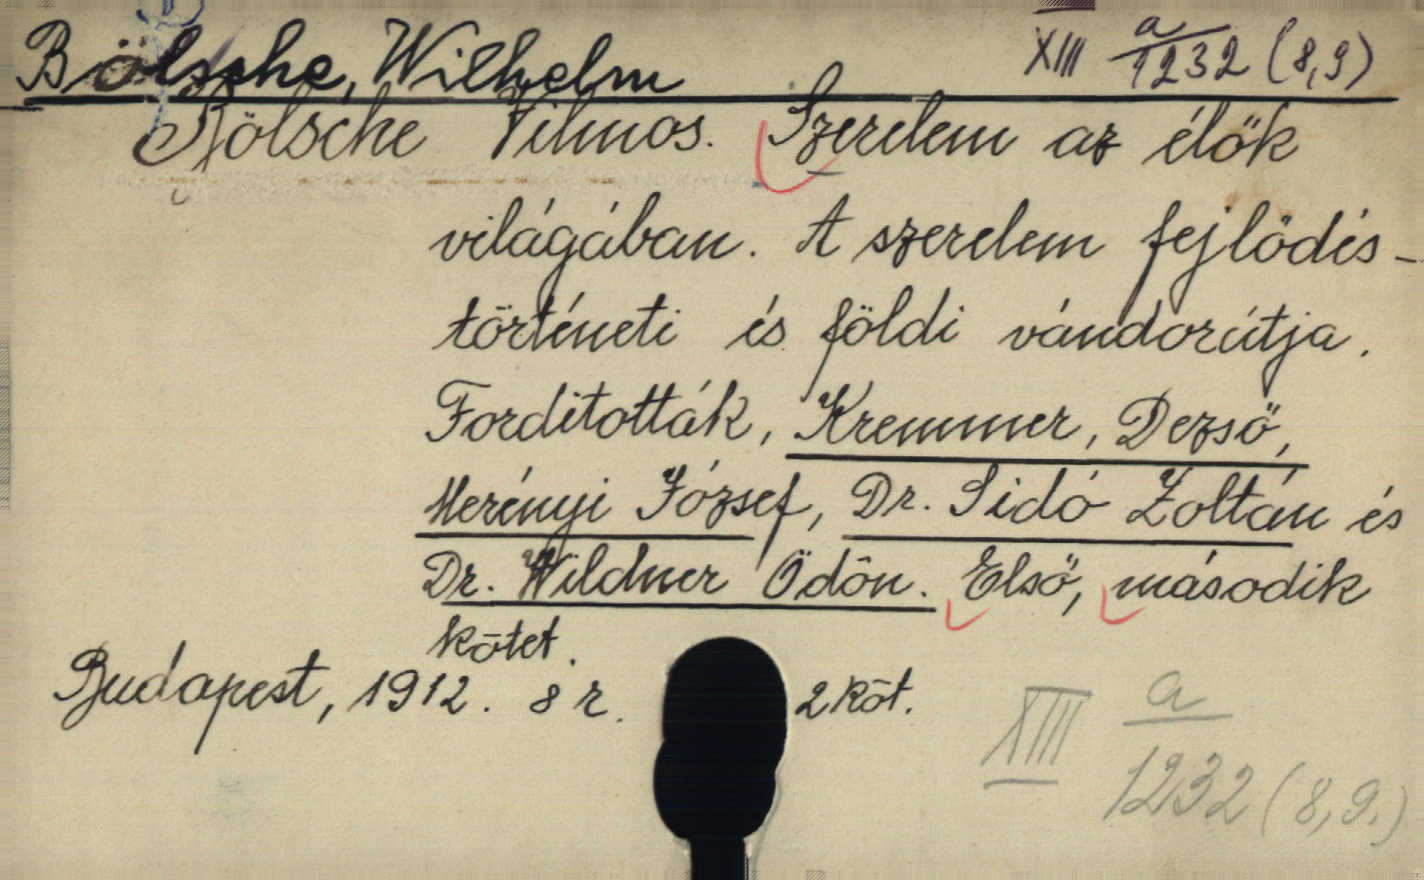 Bölsche, Wilhelm
XIII a/1232 (8,9)
Bölsche Vilmos. Szerelem az élők
világában. A szerelem fejlődés-
történeti és földi vándorútja.
Fordították, Kremmer, Dezső,
Merényi József, Dr. Sidó Zoltán és
Dr. Wildner Ödön. Első, második
kötet.
Budapest, 1912. 8 r. 2 köt.
XIII a/1232 (8,9.)